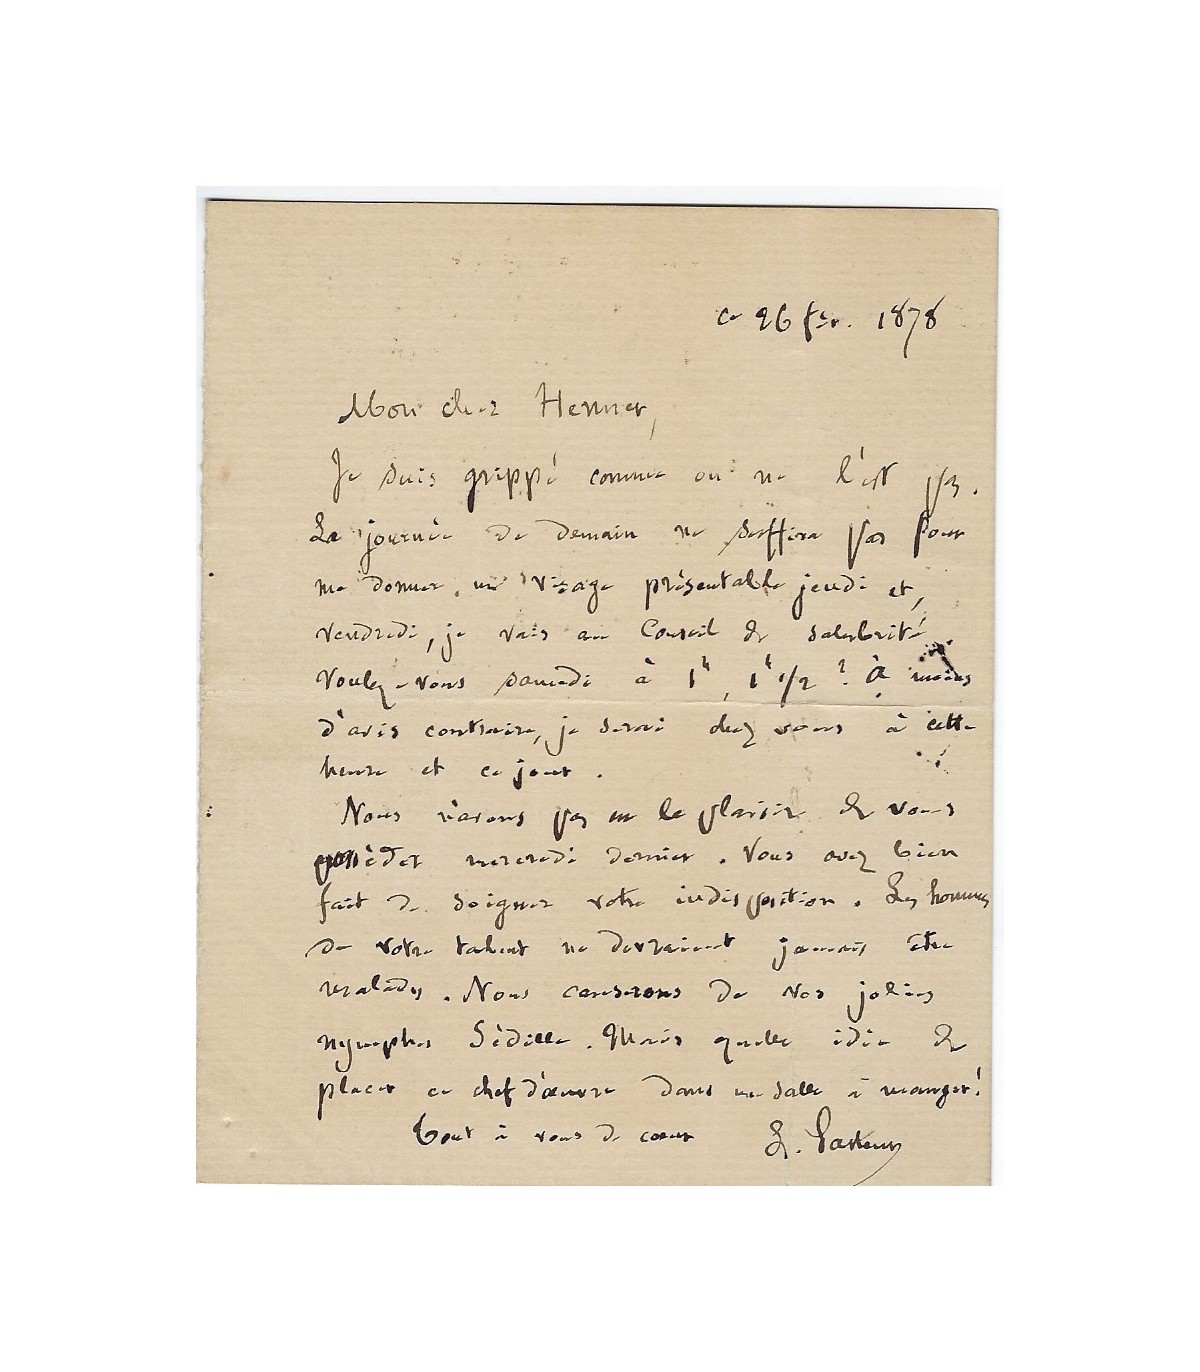 ce 26 fév. 1878
Mon cher Henner,
Je suis grippé comme on ne l'est pas.
La journée de demain ne suffira pas pour
me donner un visage présentable jeudi et,
vendredi, je vais au Conseil de salubrité.
Voulez-vous samedi à 1h, 1h 1/2 ? À moins
d'avis contraire, je serai chez vous à cette
heure et ce jour.
Nous n'avons pas eu le plaisir de vous
posséder mercredi dernier. Vous avez bien
fait de soigner votre indisposition. Les hommes
de votre talent ne devraient jamais être
malades. Nous causerons de vos jolies
nymphes Sédille. Mais quelle idée de
placer ce chef d'œuvre dans une salle à manger !
Tout à vous de cœur L. Pasteur